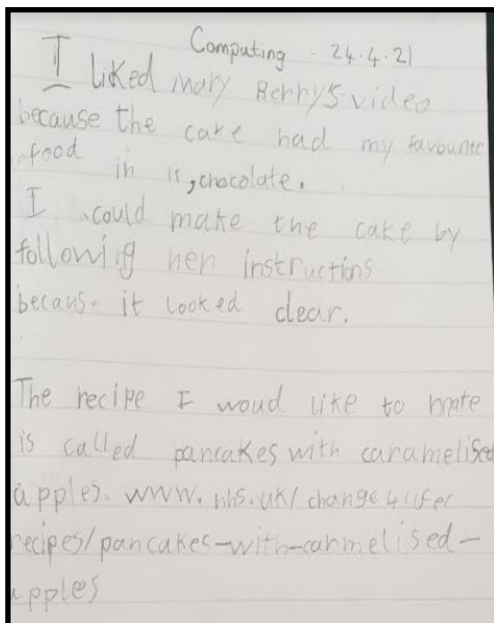 Computing - 24.4.21
I liked mary Berry's video
because the cake had my favourite
food in it, chocolate.
I could make the cake by
following her instructions
because it looked clear.
The recipe I woud like to make
is called pancakes with caramelised
apples. www.nhs.uk/change4lifer
recipes/pancakes-with-carmelised-
apples